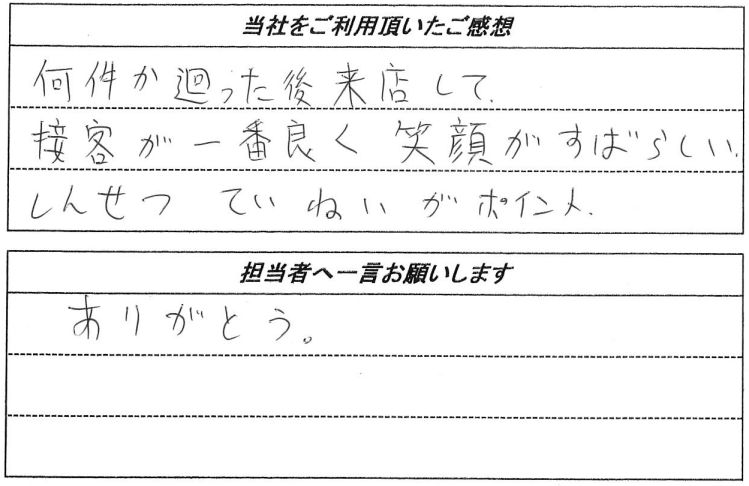 当社をご利用頂いたご感想
何件か廻った後来店して、
接客が一番良く 笑顔がすばらしい、
しんせつ ていねいがポイント、
担当者へ一言お願いします
ありがとう。